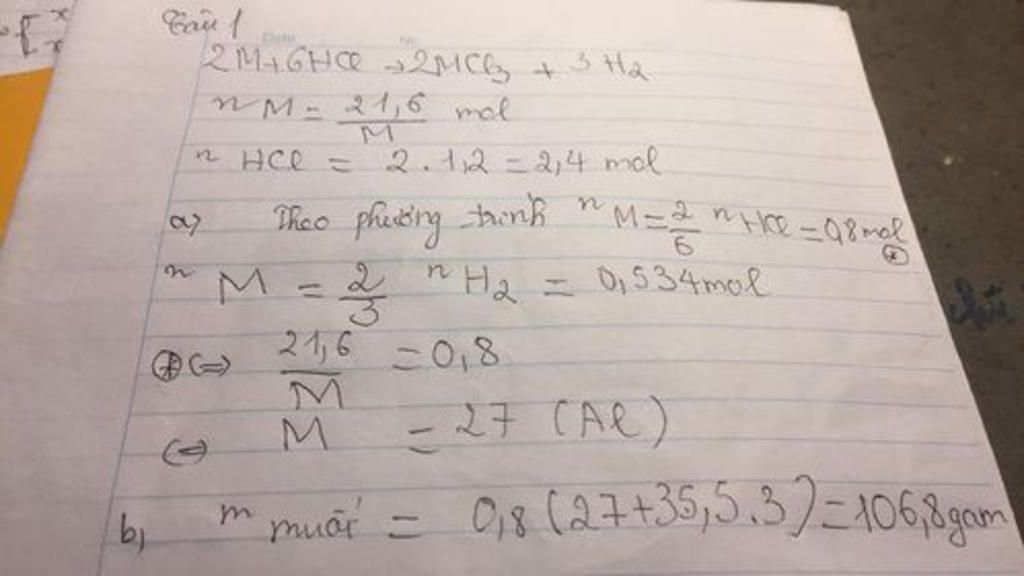 Câu 1
2M+6HCl →2MCl₃ + 3H₂
nM = 21,6/M mol
n HCl = 2.1,2=2,4 mol
a) Theo phương trình nM=2/6 nHCl=0,8mol (*)
n M = 2/3 n H₂ = 0,534mol
(*) (=) 21,6/M =0,8
(=) M = 27 (Al)
b, m muối = 0,8(27+35,5.3)=106,8gam